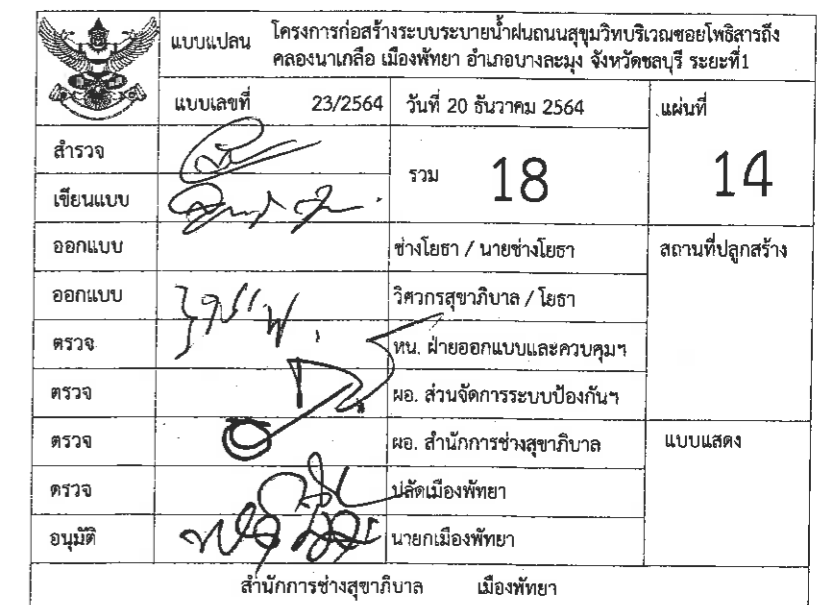 แบบแปลน โครงการก่อสร้างระบบระบายน้ำฝนถนนสุขุมวิทบริเวณซอยโพธิสารถึง
คลองนาเกลือ เมืองพัทยา อำเภอบางละมุง จังหวัดชลบุรี ระยะที่1
แบบเลขที่ 23/2564 วันที่ 20 ธันวาคม 2564 แผ่นที่
สำรวจ
รวม 18 14
เขียนแบบ
ออกแบบ ช่างโยธา / นายช่างโยธา สถานที่ปลูกสร้าง
ออกแบบ วิศวกรสุขาภิบาล / โยธา
ตรวจ หน. ฝ่ายออกแบบและควบคุมฯ
ตรวจ ผอ. ส่วนจัดการระบบป้องกันฯ
ตรวจ ผอ. สำนักการช่างสุขาภิบาล แบบแสดง
ตรวจ ปลัดเมืองพัทยา
อนุมัติ นายกเมืองพัทยา
สำนักการช่างสุขาภิบาล เมืองพัทยา